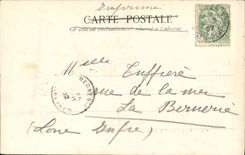 Imprimé
CARTE POSTALE
Ce côté est exclusivement réservé à l'adresse
Melle Tuffière
rue de la mer
La Bernerie
(Loire Infre)